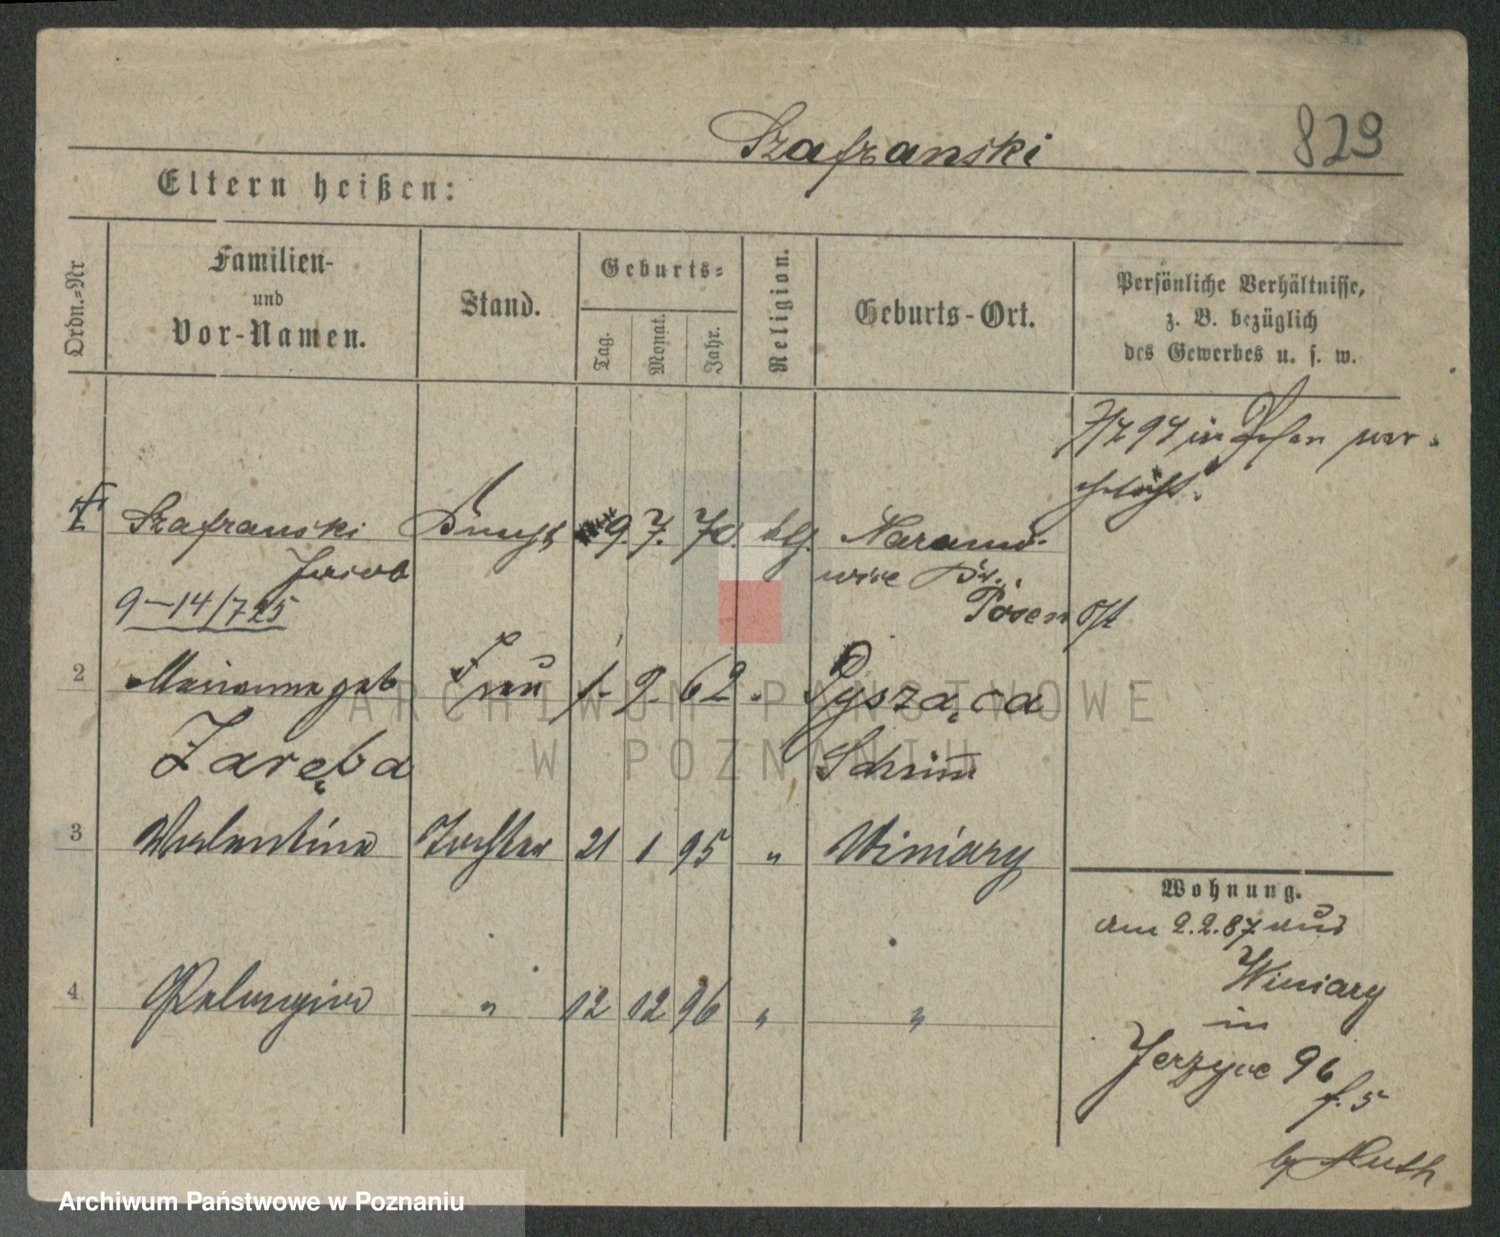 Szafranski 829
Eltern heißen:
Ordn.=Nr
Familien-
und
Vor-Namen.
Stand.
Geburts=
Tag.
Monat.
Jahr.
Religion.
Geburts-Ort.
Persönliche Verhältnisse,
z. B. bezüglich
des Gewerbes u. s. w.
in Posen ver-
ehelicht.
1 Szafranski Knecht 9. 7. 70. klg. Naramo-
Jacob wice Kr.
9-14/725 Posen Ost
2 Marianna geb Frau 1. 9. 62 " Pysząca
Zaręba Schrim
3 Valentina Tochter 21 1 95 " Winiary
Wohnung.
am 2.2.87 aus
Winiary
4 Pelagia " 12 12 96 " "
in
Jerzyce 96
f. 5
by Huth
ARCHIWUM PAŃSTWOWE
W POZNANIU
Archiwum Państwowe w Poznaniu